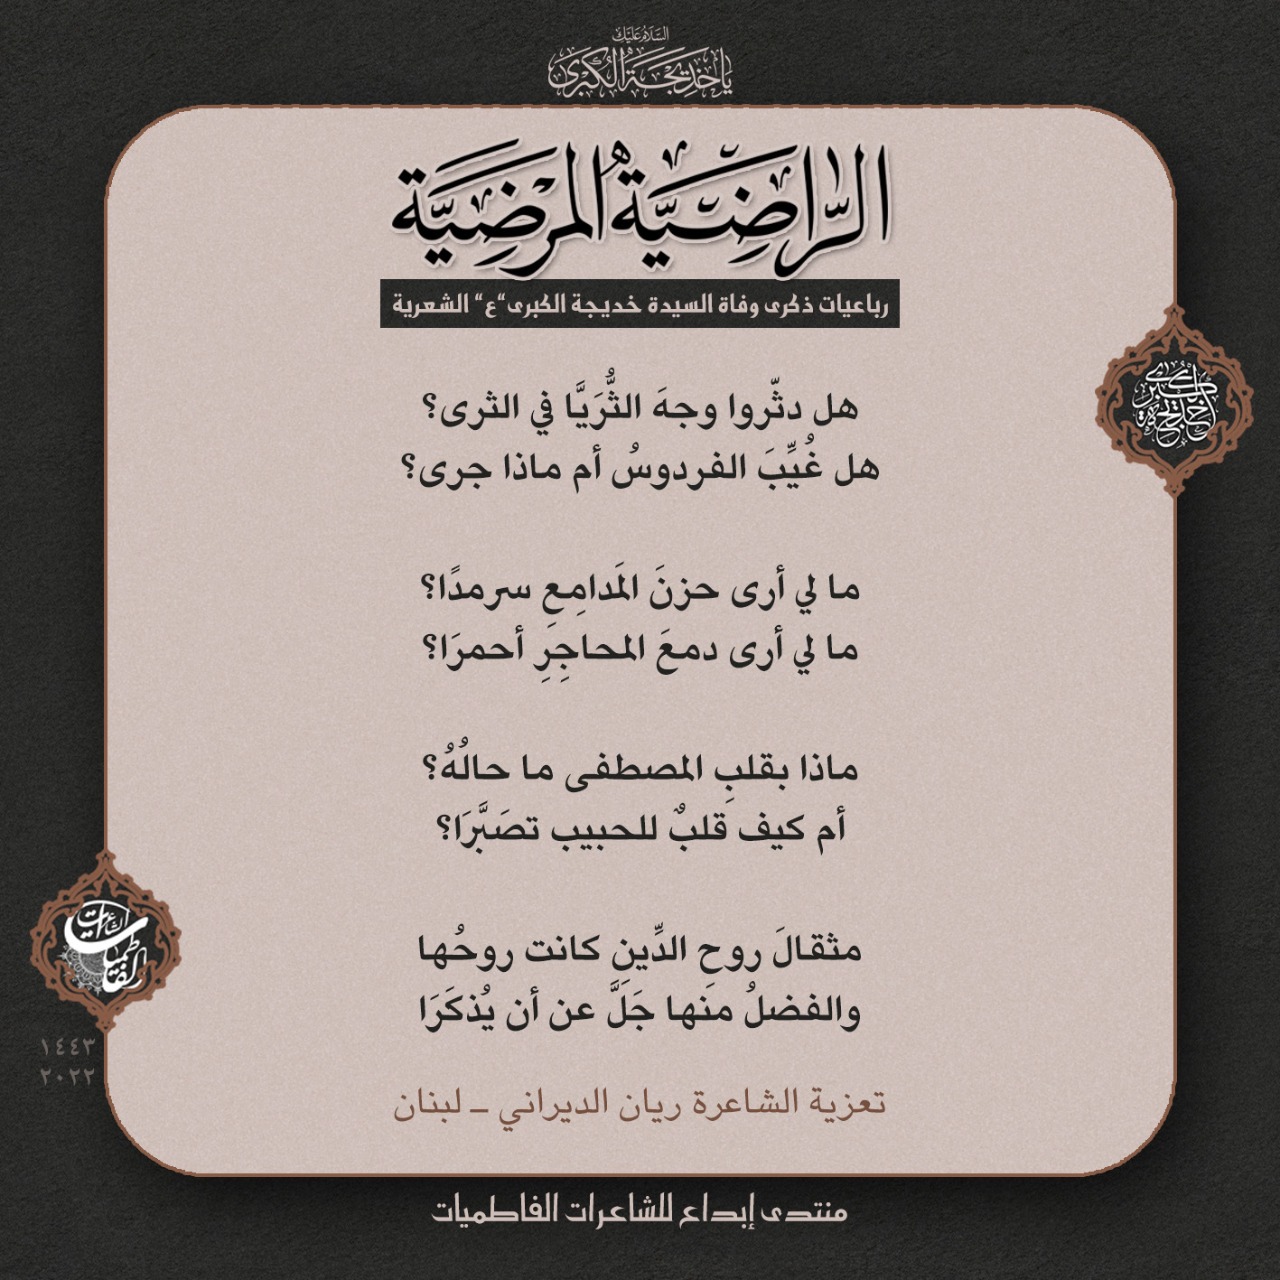 السلام عليك
يا خديجة الكبرى
الراضِيَّةُ المرْضِيَّة
رباعيات ذكرى وفاة السيدة خديجة الكبرى"ع" الشعرية
هل دثّروا وجهَ الثُّرَيَّا في الثرى؟
هل غُيِّبَ الفردوسُ أم ماذا جرى؟
خديجة الكبرى
ما لي أرى حزنَ المَدامِعِ سرمدًا؟
ما لي أرى دمعَ المحاجِرِ أحمرَا؟
ماذا بقلبِ المصطفى ما حالُهُ؟
أم كيف قلبٌ للحبيب تصَبَّرَا؟
مثقالَ روحِ الدِّينِ كانت روحُها
والفضلُ منها جَلَّ عن أن يُذكَرَا
الشاعرات الفاطميات
١٤٤٣
٢٠٢٢
تعزية الشاعرة ريان الديراني – لبنان
منتدى إبداع للشاعرات الفاطميات